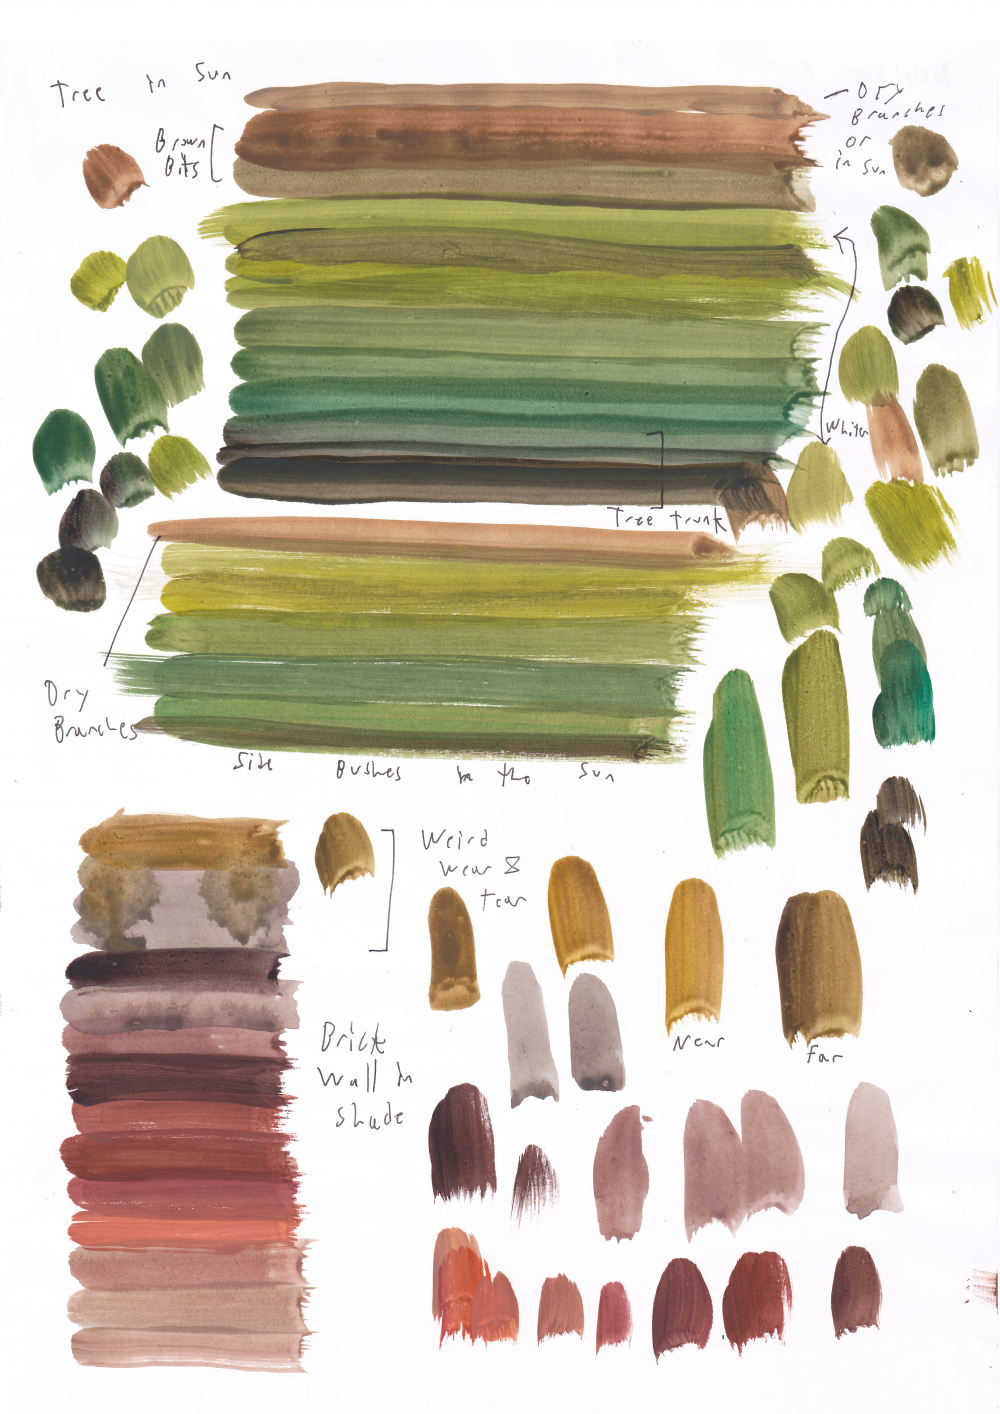 Tree in Sun
Brown
Bits
Dry
Branches
or
in Sun
White
Tree trunk
Dry
Branches
Side Bushes in the Sun
Weird
wear &
tear
Near
Far
Brick
Wall in
shade